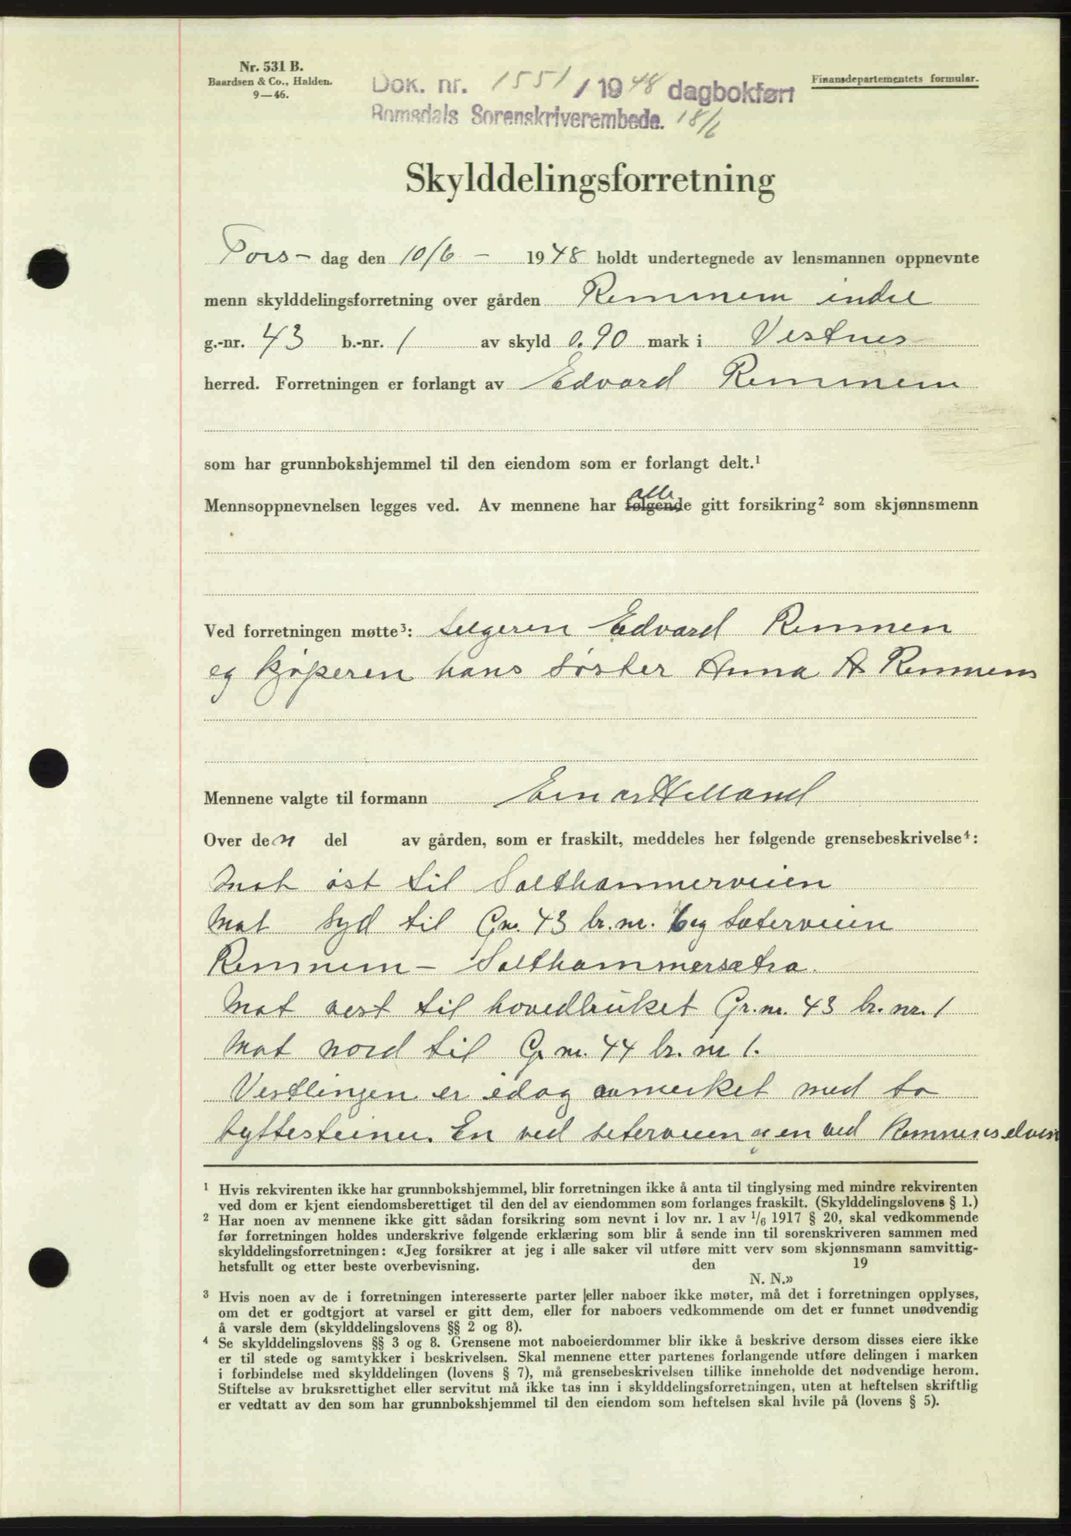 Nr. 531 B.
Baardsen & Co., Halden.
9—46.
Dok. nr. 1551 / 1948 dagbokført
Romsdals Sorenskriverembede. 18/6
Finansdepartementets formular.
Skylddelingsforretning
Tors- dag den 10/6 - 1948 holdt undertegnede av lensmannen oppnevnte
menn skylddelingsforretning over gården Remmem indre
g.-nr. 43 b.-nr. 1 av skyld 0.90 mark i Vestnes
herred. Forretningen er forlangt av Edvard Remmem
som har grunnbokshjemmel til den eiendom som er forlangt delt.¹
alle
Mennsoppnevnelsen legges ved. Av mennene har følgende gitt forsikring² som skjønnsmenn
Ved forretningen møtte³: Selgeren Edvard Remmen
og kjøperen hans søster Anna A Remmem
Mennene valgte til formann Einar Helland
Over den del av gården, som er fraskilt, meddeles her følgende grensebeskrivelse⁴:
Mot øst til Salthammerveien
Mot syd til G.nr. 43 br.nr. 6 og sæterveien
Remmem - Salthammersætra.
Mot vest til hovedbruket Gr.nr. 43 br.nr. 1
Mot nord til Gr nr. 44 br. nr 1.
er idag avmerket med to
byttesteiner. En ved seterveien og en ved Remmenselven
¹ Hvis rekvirenten ikke har grunnbokshjemmel, blir forretningen ikke å anta til tinglysing med mindre rekvirenten
ved dom er kjent eiendomsberettiget til den del av eiendommen som forlanges fraskilt. (Skylddelingslovens § 1.)
² Har noen av mennene ikke gitt sådan forsikring som nevnt i lov nr. 1 av 1/6 1917 § 20, skal vedkommende
før forretningen holdes underskrive følgende erklæring som blir å sende inn til sorenskriveren sammen med
skylddelingsforretningen: «Jeg forsikrer at jeg i alle saker vil utføre mitt verv som skjønnsmann samvittig-
hetsfullt og etter beste overbevisning. den 19
N. N.»
³ Hvis noen av de i forretningen interesserte parter eller naboer ikke møter, må det i forretningen opplyses,
om det er godtgjort at varsel er gitt dem, eller for naboers vedkommende om det er funnet unødvendig
å varsle dem (skylddelingslovens §§ 2 og 8).
⁴ Se skylddelingslovens §§ 3 og 8. Grensene mot naboeierdommer blir ikke å beskrive dersom disses eiere ikke
er til stede og samtykker i beskrivelsen. Skal mennene etter partenes forlangende utføre delingen i marken
i forbindelse med skylddelingen (lovens § 7), må grensebeskrivelsen tillike inneholde det nødvendige herom.
Stiftelse av bruksrettighet eller servitut må ikke tas inn i skylddelingsforretningen, uten at heftelsen skriftlig
er vedtatt av den som har grunnbokshjemmel til den eiendom som heftelsen skal hvile på (lovens § 5).